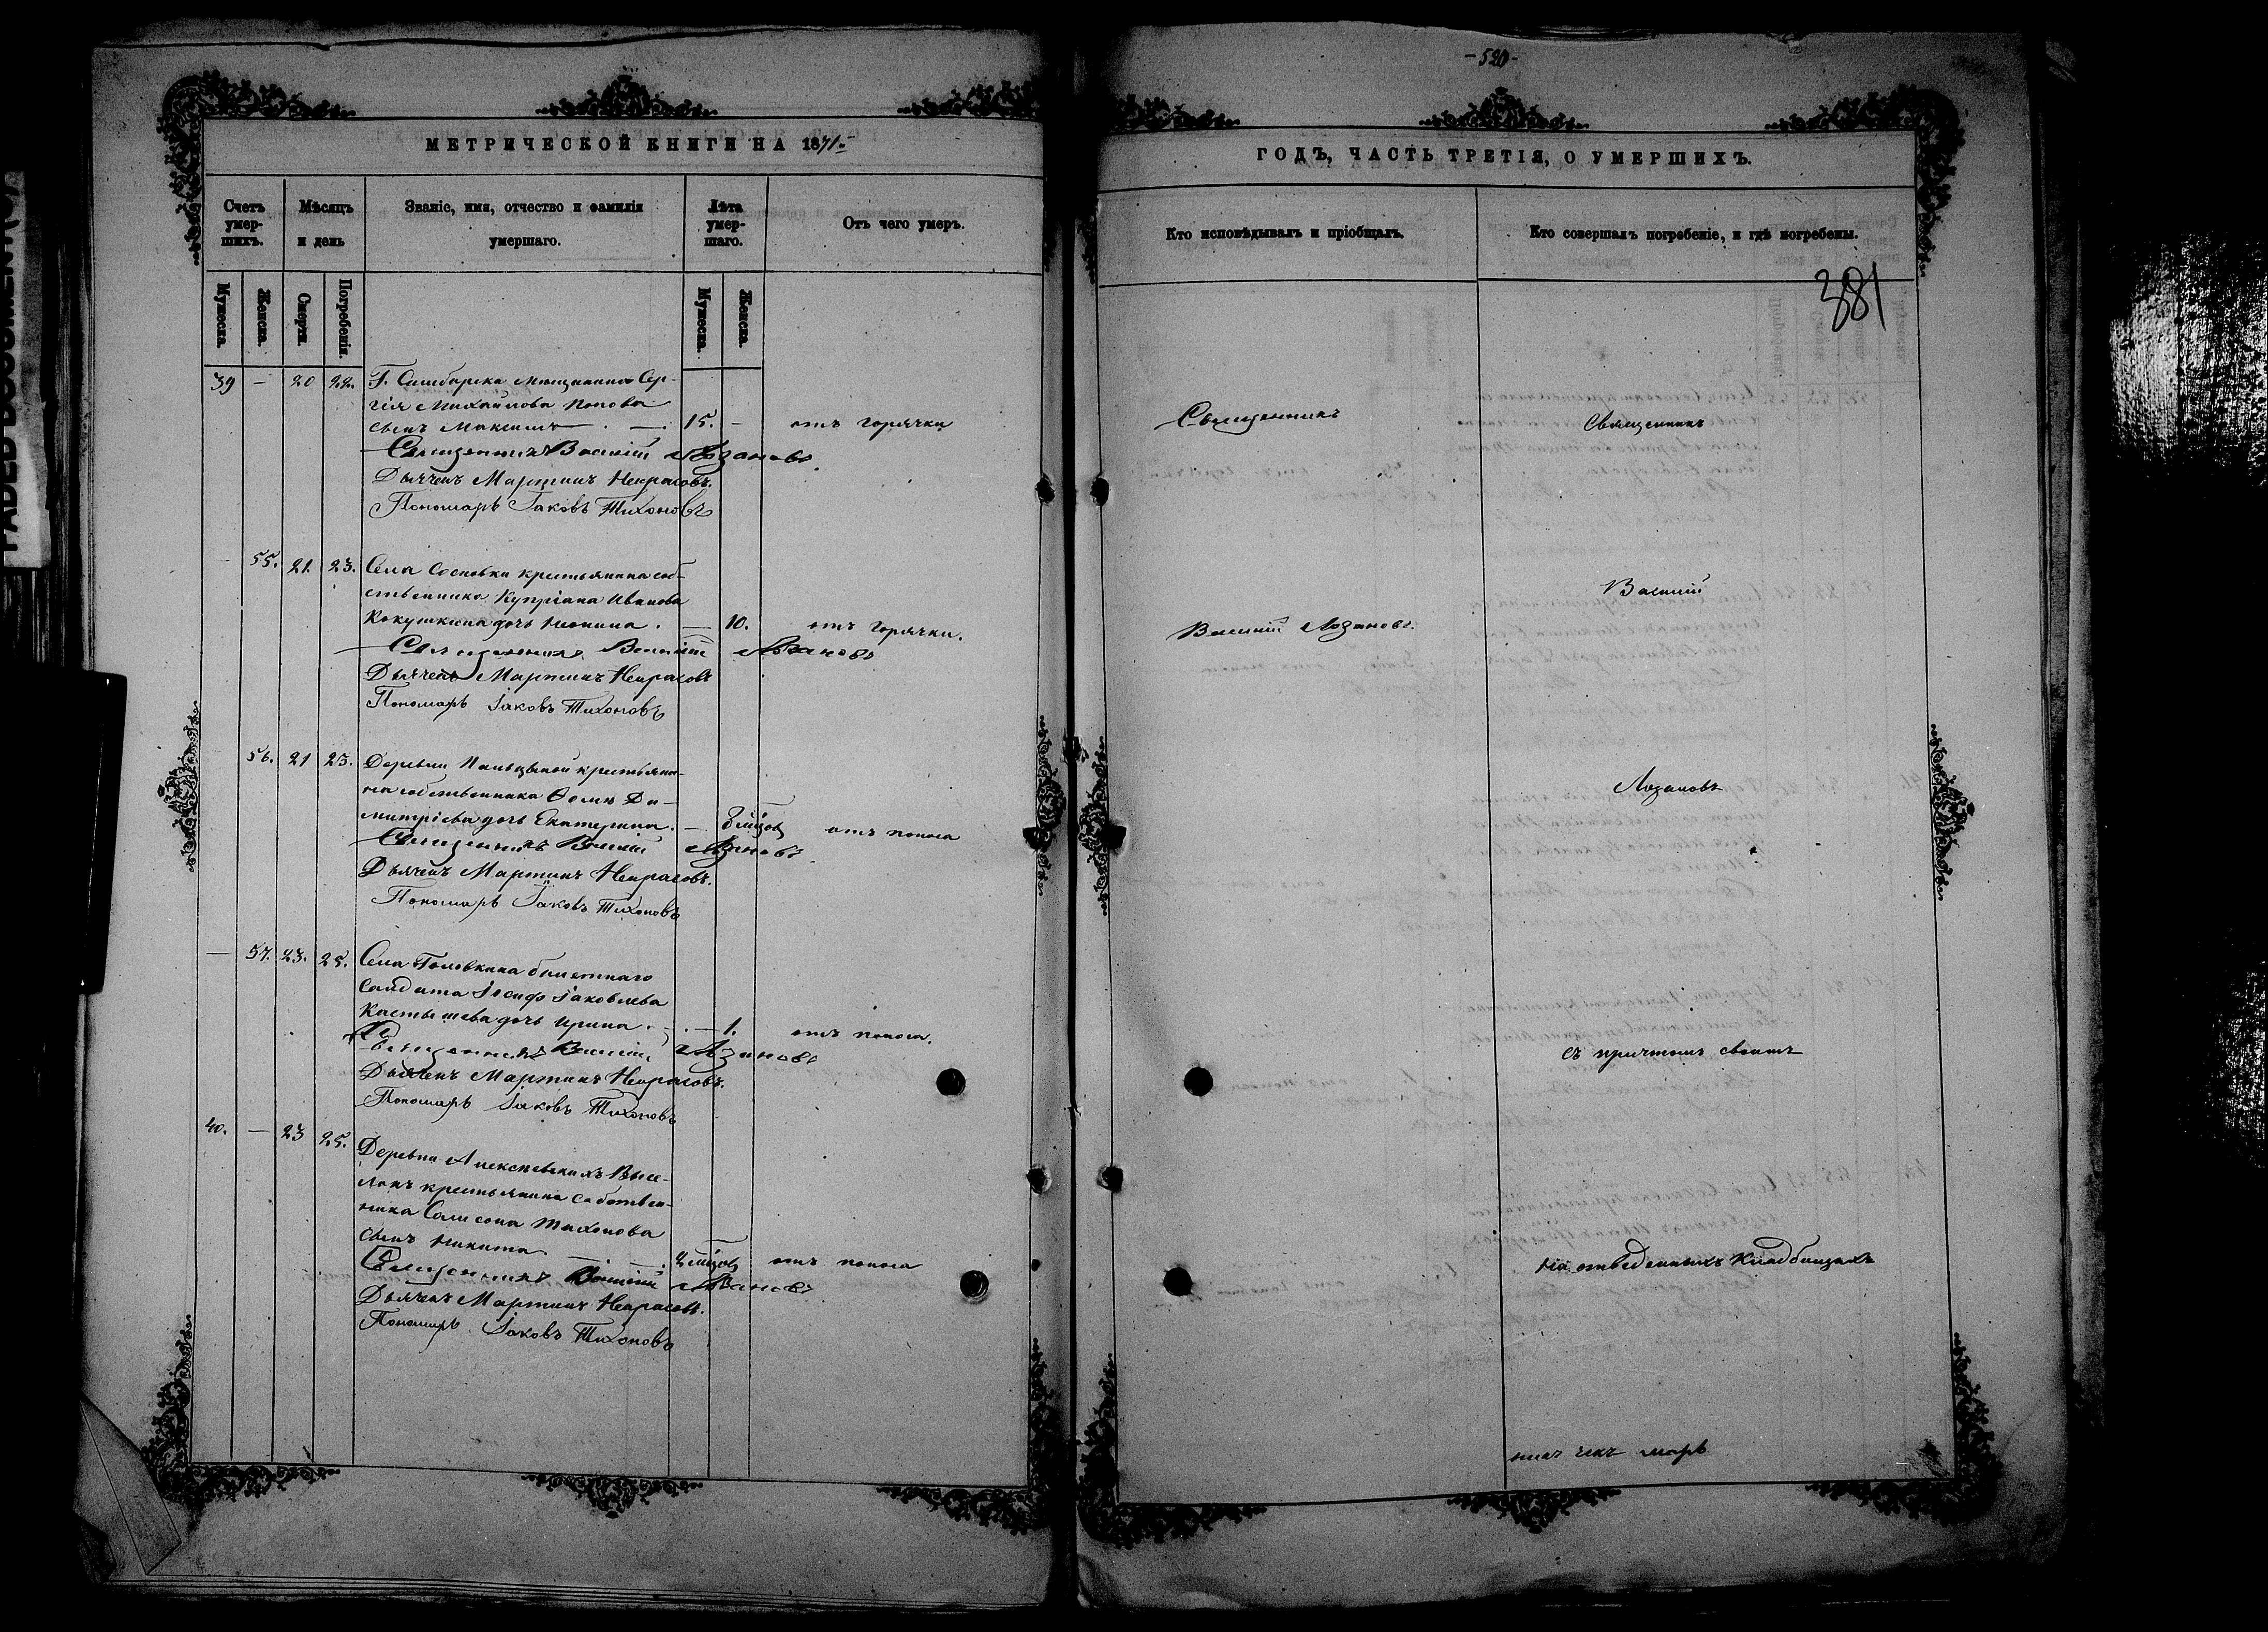 МЕТРИЧЕСКОЙ КНИГИ НА 1871
Счетъ умер-шихъ.
Мѣсяцъ и день
Званіе, имя, отчество и фамилія умершаго.
Лѣта умер-шаго.
Отъ чего умеръ.
Мужеска.
Женска.
Смерти.
Погребенія.
Мужеска.
Женска.
39 — 20 22. Г. Симбирска мѣщанина Сер-
гія Михайлова Попова
сынъ Максимъ 15. — отъ горячки
Священникъ Василій Лозановъ
Дьячекъ Мартинъ Некрасовъ.
Пономарь Іаковъ Тихоновъ
55. 21. 23. Села Сосновки крестьянина соб-
ственника Купріана Иванова
Кокушкина дочь 10. отъ горячки.
Священникъ Василій Лозановъ
Дьячекъ Мартинъ Некрасовъ
Пономарь Іаковъ Тихоновъ
56. 21 23. Деревни крестьяни-
на собственника Ѳомы Ди-
митріева дочь Екатерина. — отъ поноса
Священникъ Василій Лозановъ
Дьячекъ Мартинъ Некрасовъ.
Пономарь Іаковъ Тихоновъ
— 57. 23. 25. Села Головкина билетнаго
солдата Іосифа Іаковлева
Костышева дочь Ирина. — 1. отъ поноса.
Священникъ Василій Лозановъ
Дьячекъ Мартинъ Некрасовъ.
Пономарь Іаковъ Тихоновъ
40. — 23 25. Деревни Алексѣевскихъ Высе-
локъ крестьянина собствен-
ника Самсона Тихонова
сынъ Никита отъ поноса
Священникъ Василій Лозановъ
Дьячекъ Мартинъ Некрасовъ.
Пономарь Іаковъ Тихоновъ
-520-
ГОДЪ, ЧАСТЬ ТРЕТІЯ, О УМЕРШИХЪ.
Кто исповѣдывалъ и пріобщалъ.
Кто совершалъ погребеніе, и гдѣ погребены.
381
Священникъ
Василій Лозановъ.
Священникъ
Василій
Лозановъ
съ причтомъ своимъ
на отведенныхъ кладбищахъ